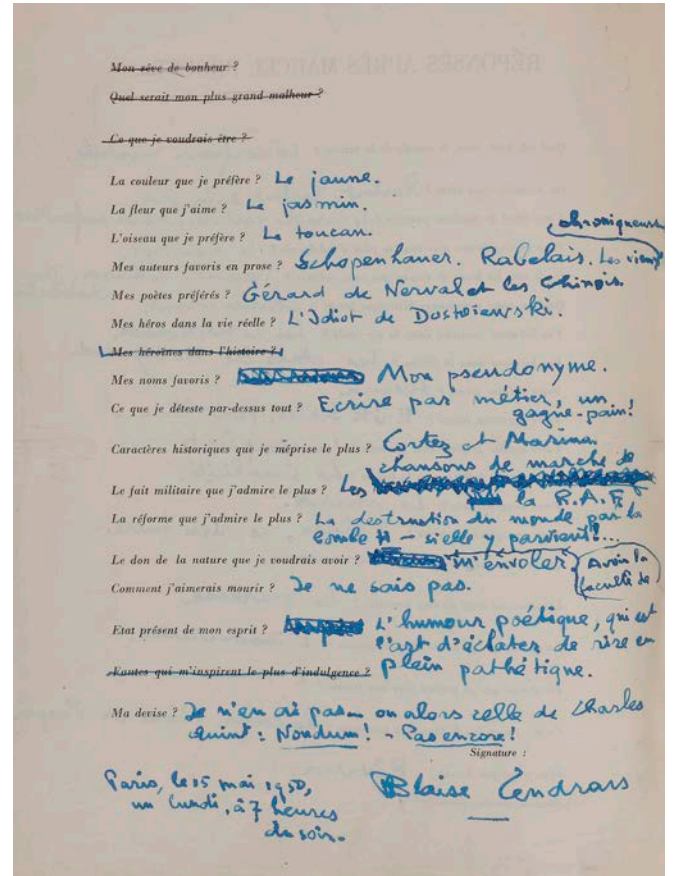 Mon rêve de bonheur ?
Quel serait mon plus grand malheur ?
Ce que je voudrais être ?
La couleur que je préfère ? Le jaune.
La fleur que j'aime ? Le jasmin.
L'oiseau que je préfère ? Le toucan.
chroniqueurs
Mes auteurs favoris en prose ? Schopenhauer. Rabelais. Les vieux
Mes poètes préférés ? Gérard de Nerval et les Chinois.
Mes héros dans la vie réelle ? L'Idiot de Dostoïewski.
Mes héroïnes dans l'histoire ?
Mes noms favoris ? Mon pseudonyme.
Ce que je déteste par-dessus tout ? Ecrire par métier, un
gagne-pain!
Caractères historiques que je méprise le plus ? Cortez et Marina.
chansons de marche de
Le fait militaire que j'admire le plus ? Les
la R.A.F.
La réforme que j'admire le plus ? La destruction du monde par la
bombe H – si elle y parvient!...
Le don de la nature que je voudrais avoir ? m'envoler Avoir la
faculté de
Comment j'aimerais mourir ? Je ne sais pas.
Etat présent de mon esprit ? L'humour poétique, qui est
l'art d'éclater de rire en
Fautes qui m'inspirent le plus d'indulgence ? plein pathétique.
Ma devise ? Je n'en ai pas – ou alors celle de Charles
Quint : Nondum! – Pas encore!
Signature :
Paris, le 15 mai 1950, Blaise Cendrars
un lundi, à 7 heures
du soir.